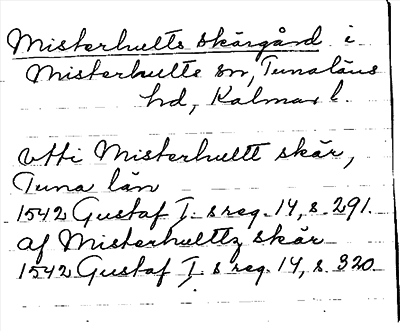 Misterhults skärgård i
Misterhults sn, Tunaläns
hd, Kalmar l.
vtti Misterhultt skär,
Tuna län
1542 Gustaf I. s reg. 14, s. 291.
af Misterhulltz skär
1542 Gustaf I. s reg. 14, s. 320.